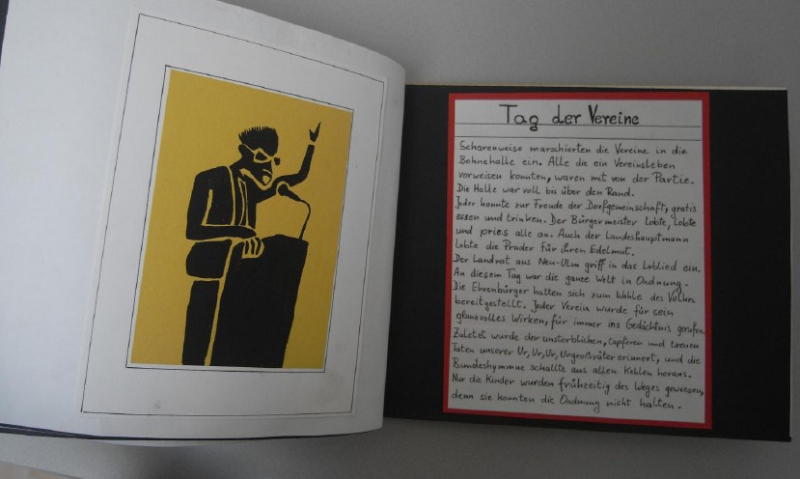 Tag der Vereine
Scharenweise marschierten die Vereine in die
Bohnehalle ein. Alle die ein Vereinsleben
vorweisen konnten, waren mit von der Partie.
Die Halle war voll bis über den Rand.
Jeder konnte zur Freude der Dorfgemeinschaft, gratis
essen und trinken. Der Bürgermeister lobte, lobte
und pries alle an. Auch der Landeshauptmann
lobte die Prader für ihren Edelmut.
Der Landrat aus Neu-Ulm griff in das Loblied ein.
An diesem Tag war die ganze Welt in Ordnung.
Die Ehrenbürger hatten sich zum Wohle des Volkes
bereitgestellt. Jeder Verein wurde für sein
glanzvolles Wirken, für immer ins Gedächtnis gerufen.
Zuletzt wurde der unsterblichen, tapferen und treuen
Taten unserer Ur, Ur, Ur, Urgroßväter erinnert, und die
Bundeshymne schallte aus allen Kehlen heraus.
Nur die Kinder wurden frühzeitig des Weges gewiesen,
denn sie konnten die Ordnung nicht halten.